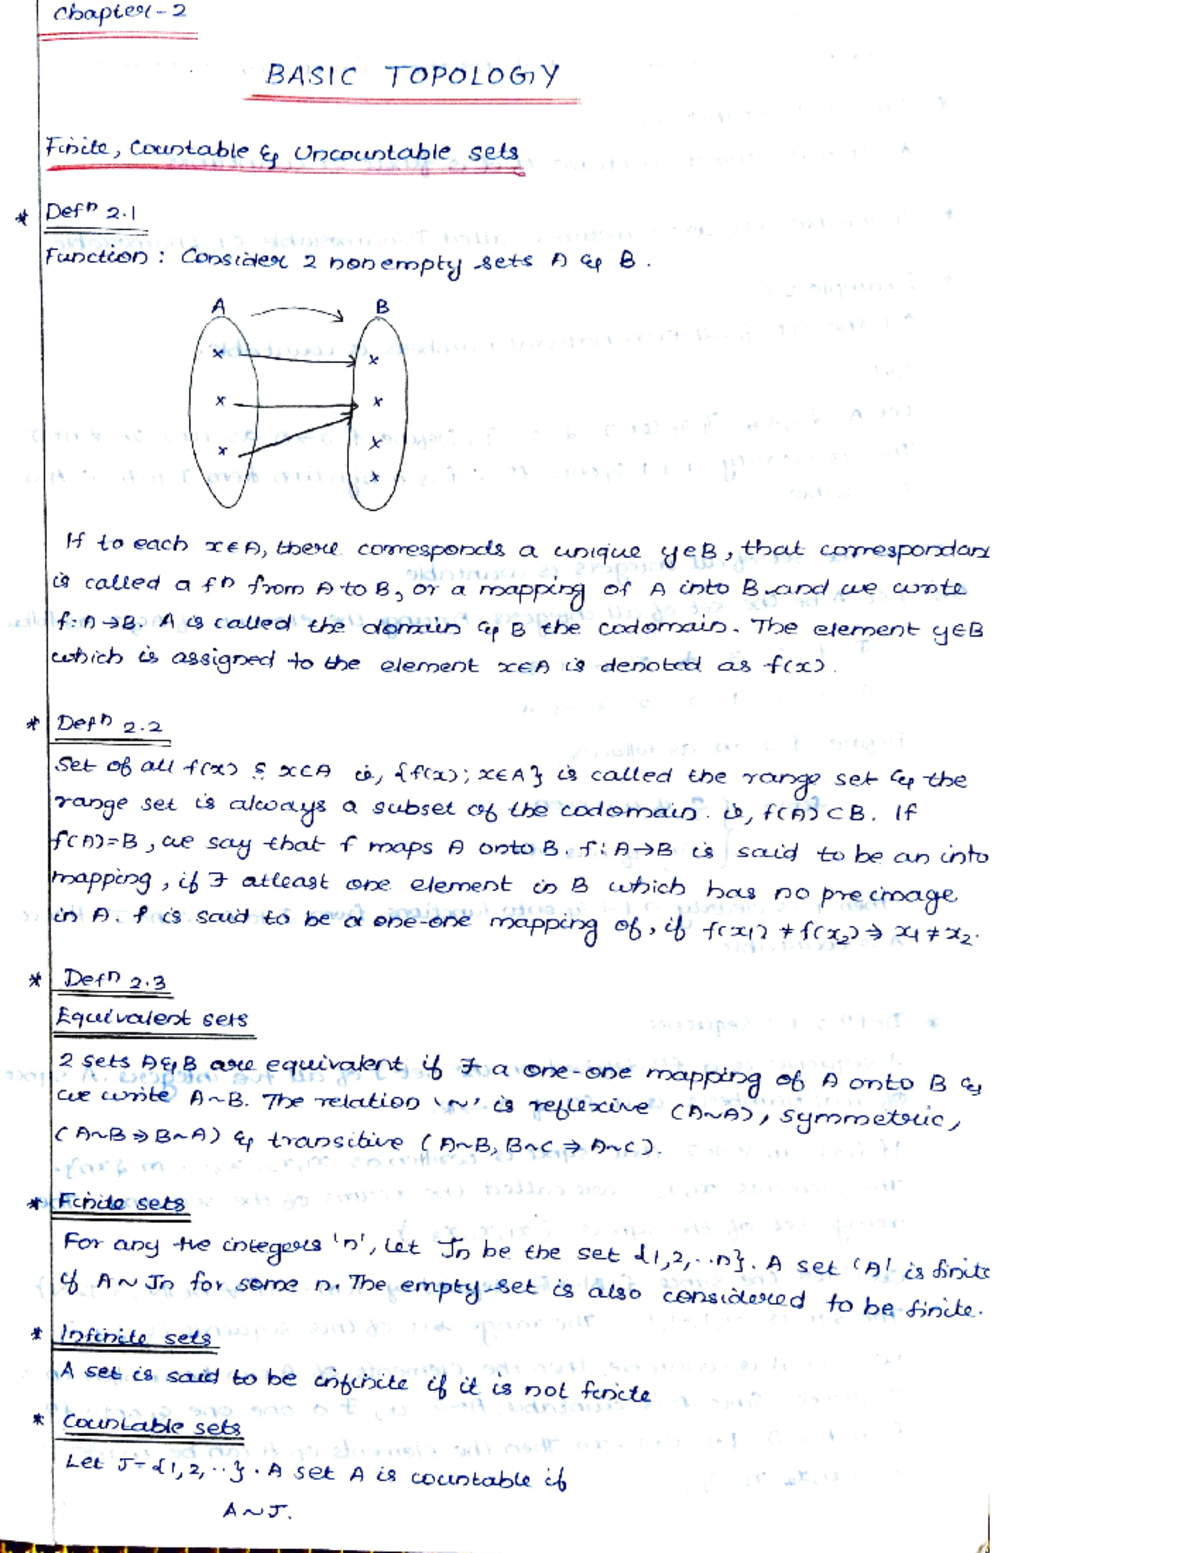 Chapter-2
BASIC TOPOLOGY
Finite, Countable & Uncountable sets
* Defn 2.1
Function : Consider 2 nonempty sets A & B.
A B
x x
x x
x x
x
If to each x∈A, there corresponds a unique y∈B, that correspondan
is called a fn from A to B, or a mapping of A into B and we write
f: A→B. A is called the domain & B the codomain. The element y∈B
which is assigned to the element x∈A is denoted as f(x).
* Defn 2.2
Set of all f(x) x⊂A ie, {f(x); x∈A} is called the range set & the
range set is always a subset of the codomain. ie, f(A)⊂B. If
f(A)=B, we say that f maps A onto B. f: A→B is said to be an into
mapping, if ∃ atleast one element in B which has no preimage
in A. f is said to be a one-one mapping of, if f(x1) ≠ f(x2) ⇒ x1 ≠ x2.
* Defn 2.3
Equivalent sets
2 sets A & B are equivalent if ∃ a one-one mapping of A onto B &
we write A~B. The relation '~' is reflexive (A~A), symmetric,
(A~B ⇒ B~A) & transitive (A~B, B~C ⇒ A~C).
* Finite sets
For any +ve integers 'n', let Jn be the set {1,2,..n}. A set 'A' is finite
if A ~ Jn for some n. The empty set is also considered to be finite.
* Infinite sets
A set is said to be infinite if it is not finite
* Countable sets
Let J = {1,2,..}. A set A is countable if
A~J.